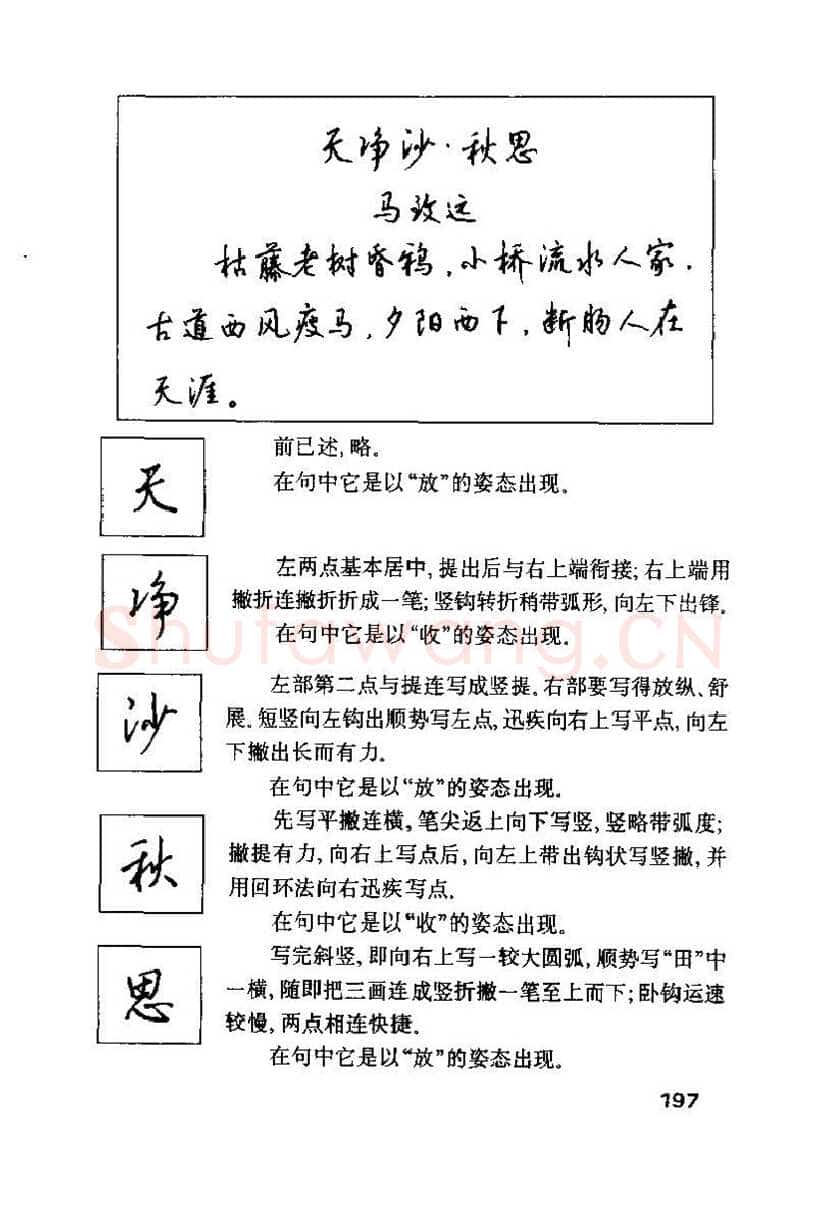 天净沙·秋思
马致远
枯藤老树昏鸦,小桥流水人家.
古道西风瘦马,夕阳西下,断肠人在
天涯。
天
前已述,略。
在句中它是以“放”的姿态出现。
净
左两点基本居中,提出后与右上端衔接;右上端用
撇折连撇折折成一笔;竖钩转折稍带弧形,向左下出锋。
在句中它是以“收”的姿态出现。
沙
左部第二点与提连写成竖提。右部要写得放纵、舒
展。短竖向左钩出顺势写左点,迅疾向右上写平点,向左
下撇出长而有力。
在句中它是以“放”的姿态出现。
秋
先写平撇连横。笔尖返上向下写竖,竖略带弧度;
撇提有力,向右上写点后,向左上带出钩状写竖撇,并
用回环法向右迅疾写点。
在句中它是以“收”的姿态出现。
思
写完斜竖,即向右上写一较大圆弧,顺势写“田”中
一横,随即把三画连成竖折撇一笔至上而下;卧钩运速
较慢,两点相连快捷。
在句中它是以“放”的姿态出现。
197
Shufawang.CN